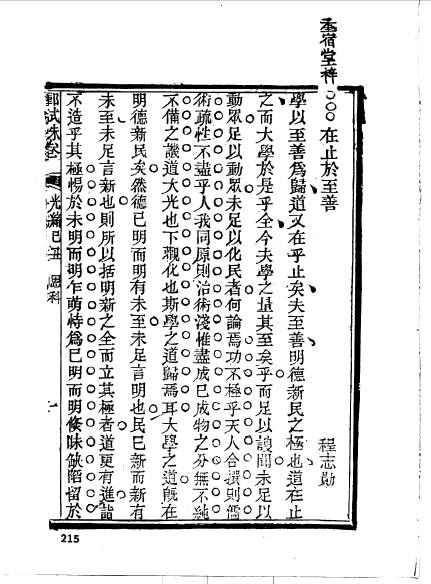 在止於至善
程志勛
學以至善為歸道又在乎止矣夫至善明德新民之極也道在止
之而大學於是乎全今夫學之量其至矣乎而足以謏聞未足以
動眾足以動眾未足以化民者何論焉功不極乎天人合撰則儒
術疏性不盡乎人我同原則治術淺惟盡成己成物之分無不純
不備之譏道大光也下觀化也斯學之道歸焉耳大學之道既在
明德新民矣然德已明而明有未至未足言明也民已新而新有
未至未足言新也則所以括明新之全而立其極者道更有進詣
不造乎其極愓於未明而明乍萌恃為已明而明倏昧缺陷留於
鄉試硃卷
光緒己丑 恩科
一
215